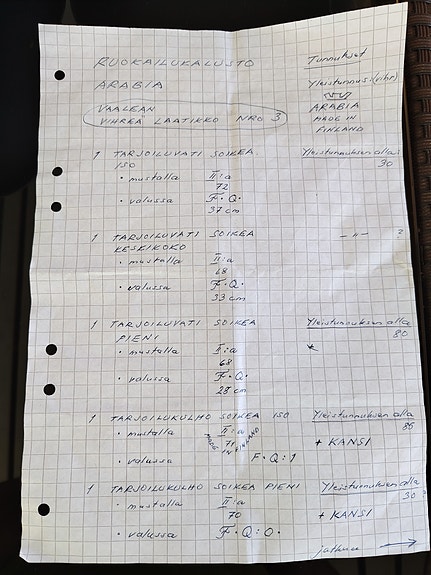 RUOKAILUKALUSTO Tunnukset
ARABIA Yleistunnus: (vihr)
VAALEAN ARABIA
VIHREÄ LAATIKKO NRO 3 MADE IN
FINLAND
1 TARJOILUVATI SOIKEA Yleistunnuksen alla:
ISO 30
• mustalla II:a
72
• valussa F•Q•
37 cm
1 TARJOILUVATI SOIKEA – " – ?
KESKIKOKO
• mustalla II:a
68
• valussa F•Q•
33 cm
1 TARJOILUVATI SOIKEA Yleistunnuksen alla
PIENI 80
• mustalla II:a *
68
• valussa F•Q•
28 cm
1 TARJOILUKULHO SOIKEA ISO Yleistunnuksen alla
• mustalla II:a 86
71 + KANSI
MADE IN FINLAND
• valussa F•Q:1
1 TARJOILUKULHO SOIKEA PIENI Yleistunnuksen alla
• mustalla II:a 30 ?
70 + KANSI
• valussa F•Q:0•
jatkuu →